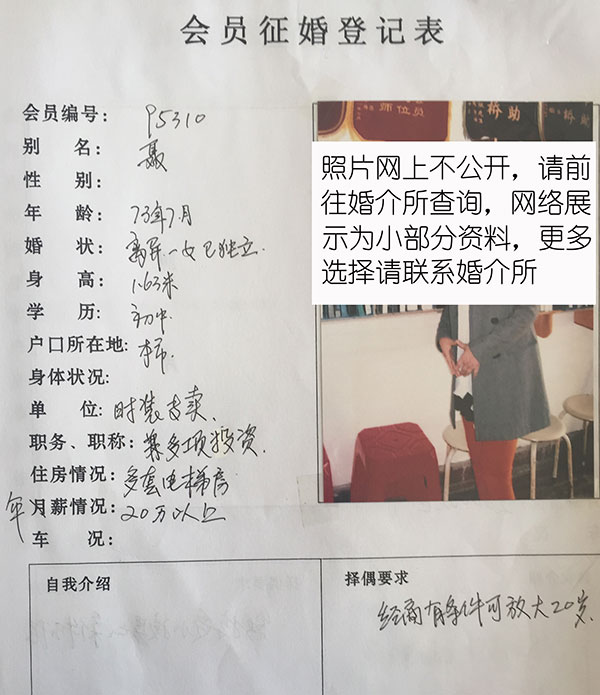 会员征婚登记表
会员编号: P5310
别 名: 聂
性 别:
年 龄: 73年7月
婚 状: 离异一女已独立.
身 高: 1.63米
学 历: 初中
户口所在地: 本市.
身体状况:
单 位: 时装卖.
职务、职称: 兼多项投资.
住房情况: 多套电梯房
年月薪情况: 20万以上
车 况:
师位员
桥助
照片网上不公开，请前
往婚介所查询，网络展
示为小部分资料，更多
选择请联系婚介所
自我介绍
择偶要求
经商有条件可放大20岁.